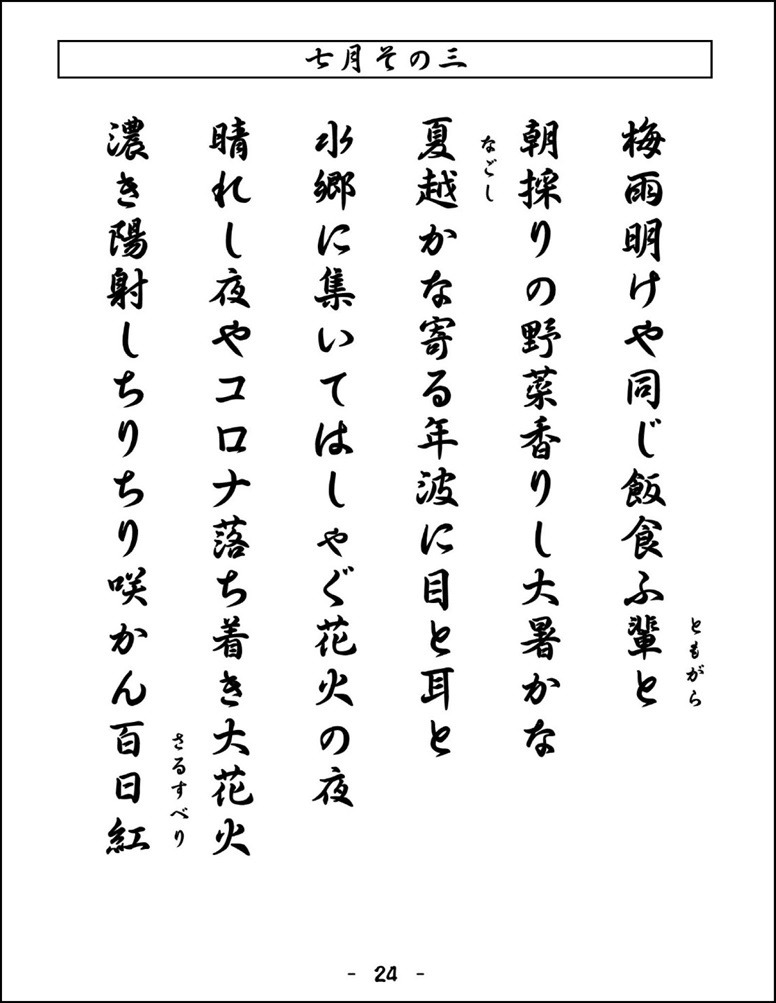 七月その三
梅雨明けや同じ飯食ふ輩と
ともがら
朝採りの野菜香りし大暑かな
夏越かな寄る年波に目と耳と
なごし
水郷に集いてはしゃぐ花火の夜
晴れし夜やコロナ落ち着き大花火
濃き陽射しちりちり咲かん百日紅
さるすべり
- 24 -